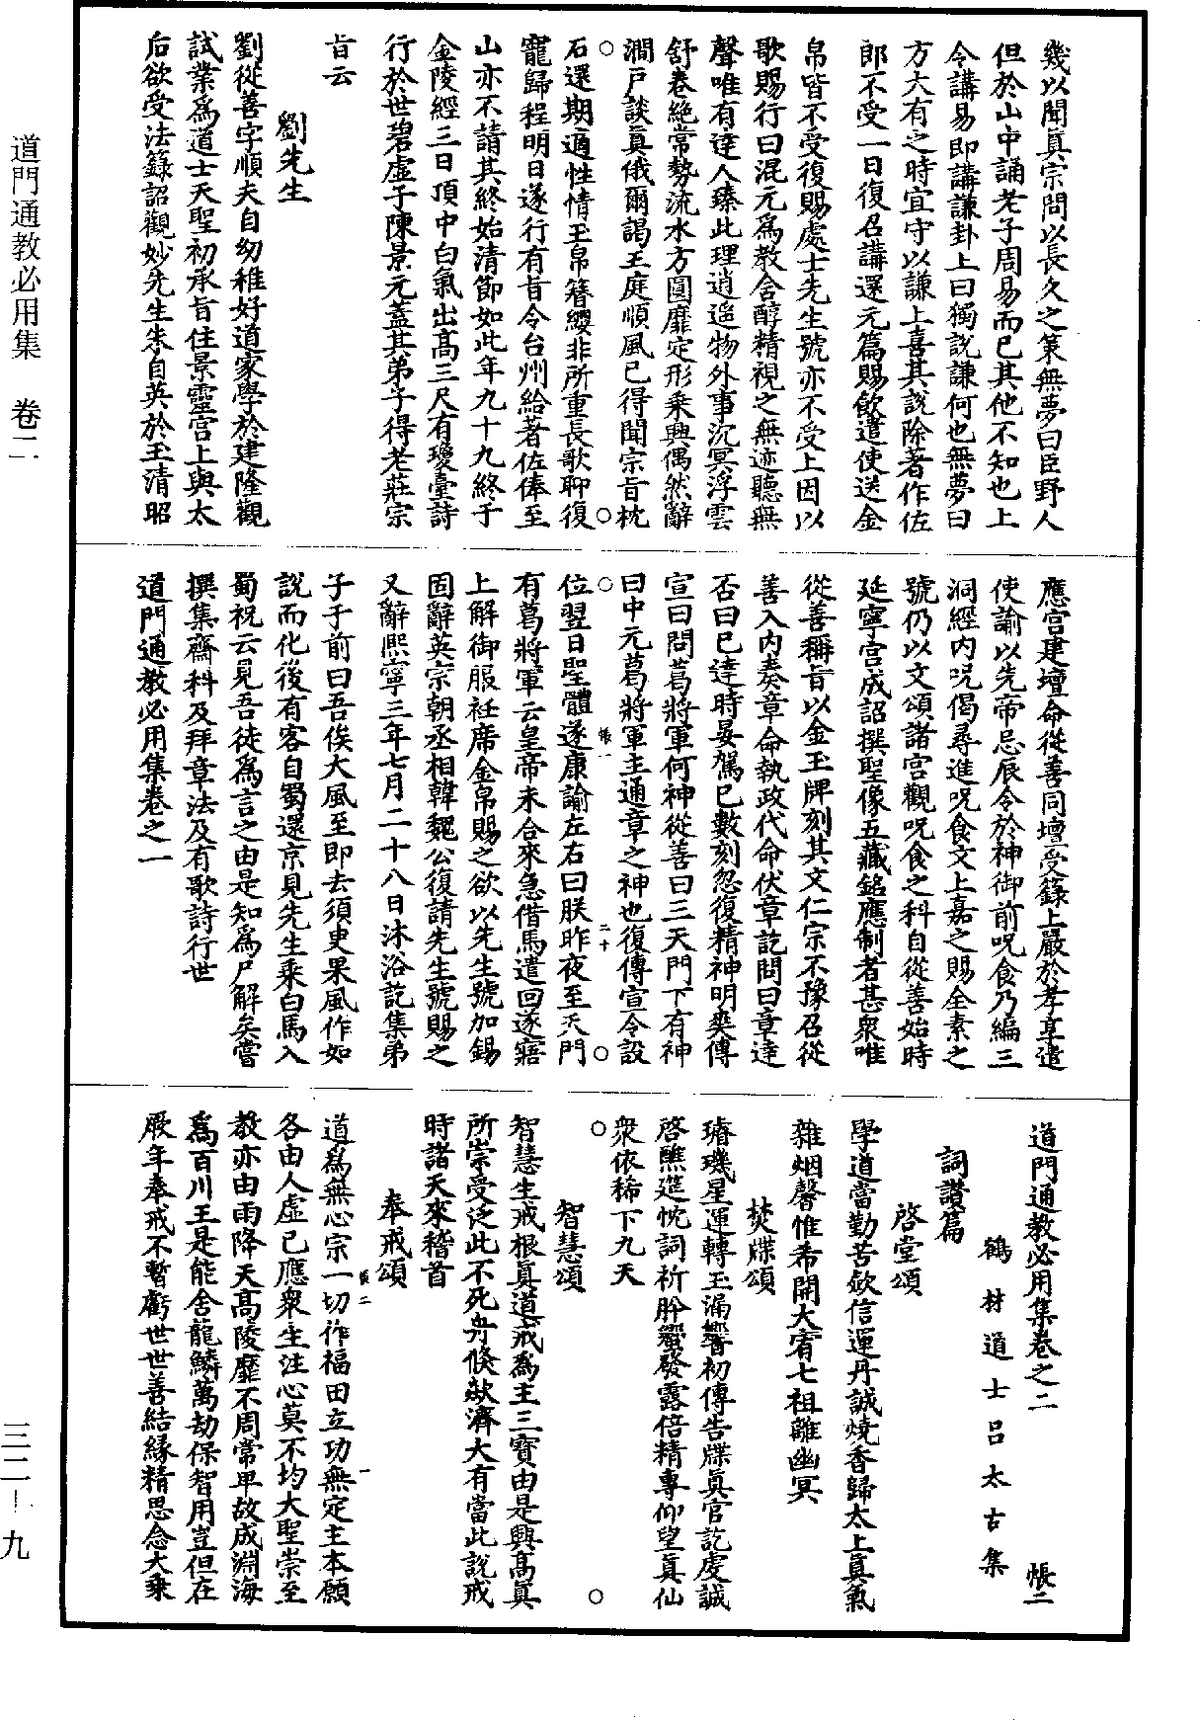 道門通教必用集　卷二
三二—九
幾以聞真宗問以長久之策無夢曰臣野人
但於山中誦老子周易而已其他不知也上
令講易即講謙卦上曰獨說謙何也無夢曰
方大有之時宜守以謙上喜其說除著作佐
郎不受一日復召講還元篇賜飲遣使送金
帛皆不受復賜處士先生號亦不受上因以
歌賜行曰混元爲教含醇精視之無迹聽無
聲唯有達人臻此理逍遥物外事沉冥浮雲
舒卷絶常勢流水方圓靡定形乘興偶然辭
澗戸談眞俄爾謁王庭順風已得聞宗旨枕
石還期適性情玉帛簪纓非所重長歌聊復
寵歸程明日遂行有旨令台州給著佐俸至
山亦不請其終始清節如此年九十九終于
金陵經三日頂中白氣出高三尺有瓊臺詩
行於世碧虚子陳景元蓋其弟子得老莊宗
旨云
劉先生
劉從善字順夫自幼稚好道家學於建隆觀
試業爲道士天聖初承旨住景靈宫上與太
后欲受法籙詔觀妙先生朱自英於玉清昭
應宫建壇命從善同壇受籙上嚴於孝享遣
使諭以先帝忌辰令於神御前呪食乃編三
洞經内呪偈尋進呪食文上嘉之賜全素之
號仍以文頒諸宫觀呪食之科自從善始時
延寧宫成詔撰聖像五藏銘應制者甚衆唯
從善稱旨以金玉牌刻其文仁宗不豫召從
善入内奏章命執政代命伏章訖問曰章達
否曰已達時晏駕已數刻忽復精神明爽傳
宣曰問葛將軍何神從善曰三天門下有神
曰中元葛將軍主通章之神也復傳宣令設
位翌日聖體遂康諭左右曰朕昨夜至天門
有葛將軍云皇帝未合來急借馬遣回遂寤
上解御服衽席金帛賜之欲以先生號加錫
固辭英宗朝丞相韓魏公復請先生號賜之
又辭熙寧三年七月二十八日沐浴訖集弟
子于前曰吾俟大風至即去須臾果風作如
說而化後有客自蜀還京見先生乘白馬入
蜀祝云見吾徒爲言之由是知爲尸解矣嘗
撰集齋科及拜章法及有歌詩行世
道門通教必用集卷之一
帳一
二十
道門通教必用集卷之二　帳二
鶴林道士吕太古集
詞讃篇
啓堂頌
學道當勤苦歛信運丹誠燒香歸太上眞氣
雜烟馨惟希開大宥七祖離幽冥
焚牒頌
璿璣星運轉玉漏響初傳告牒眞官訖虔誠
啓醮筵忱詞祈肸蠁發露倍精專仰望眞仙
衆依稀下九天
智慧頌
智慧生戒根眞道戒爲主三寶由是興高眞
所崇受泛此不死舟倐欻濟大有當此說戒
時諸天來稽首
奉戒頌
道爲無心宗一切作福田立功無定主本願
各由人虚己應衆生注心莫不均大聖崇至
教亦由雨降天高陵靡不周常卑故成淵海
爲百川王是能舍龍鱗萬劫保智用豈但在
厥年奉戒不暫虧世世善結縁精思念大乘
帳二
一